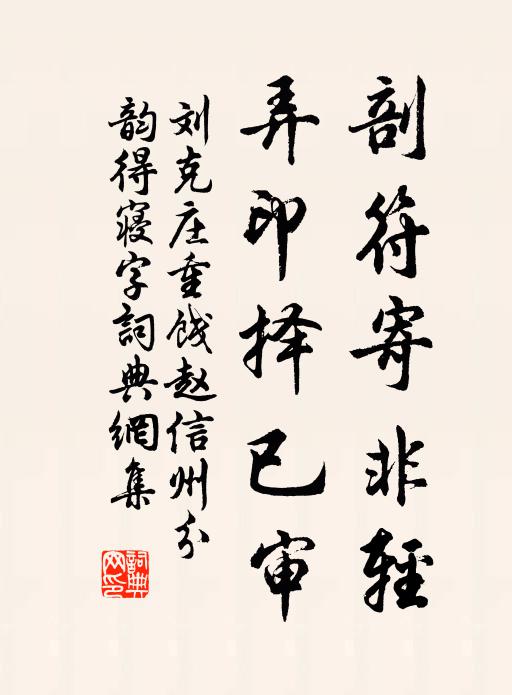 剖符寄非輕
弄印择已审
刘克庄重饯赵信州分
韵得寝字詞典網集
詞典网印